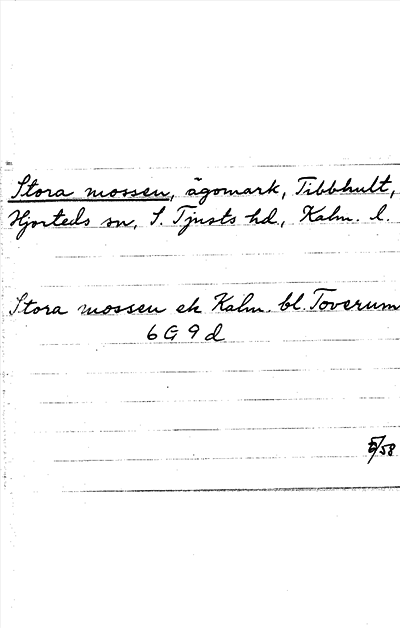 Stora mossen, ägomark, Tibbhult,
Hjorteds sn, S. Tjusts hd, Kalm. l.
Stora mossen ek Kalm. bl. Toverum
6 G 9 d
5/58